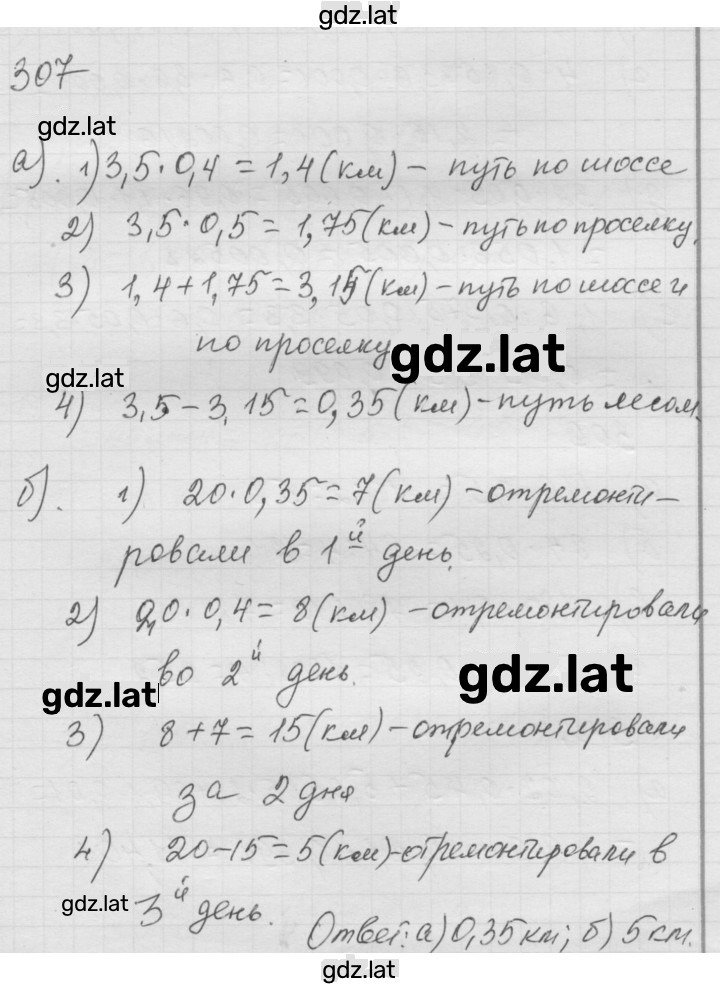 gdz.lat
307
gdz.lat
а). 1) 3,5·0,4 = 1,4(км) – путь по шоссе
2) 3,5·0,5 = 1,75(км) – путь по проселку.
3) 1,4+1,75 = 3,15(км) – путь по шоссе и
по проселку
gdz.lat
gdz.lat
4) 3,5–3,15 = 0,35(км) – путь лесом.
б). 1) 20·0,35 = 7(км) – отремонти–
ровали в 1й день.
2) 20·0,4 = 8(км) – отремонтировали
во 2й день.
gdz.lat
gdz.lat
3) 8+7 = 15(км) – отремонтировали
за 2 дня
4) 20–15 = 5(км) – отремонтировали в
gdz.lat
3й день.
Ответ: а) 0,35 км; б) 5 км.
gdz.lat